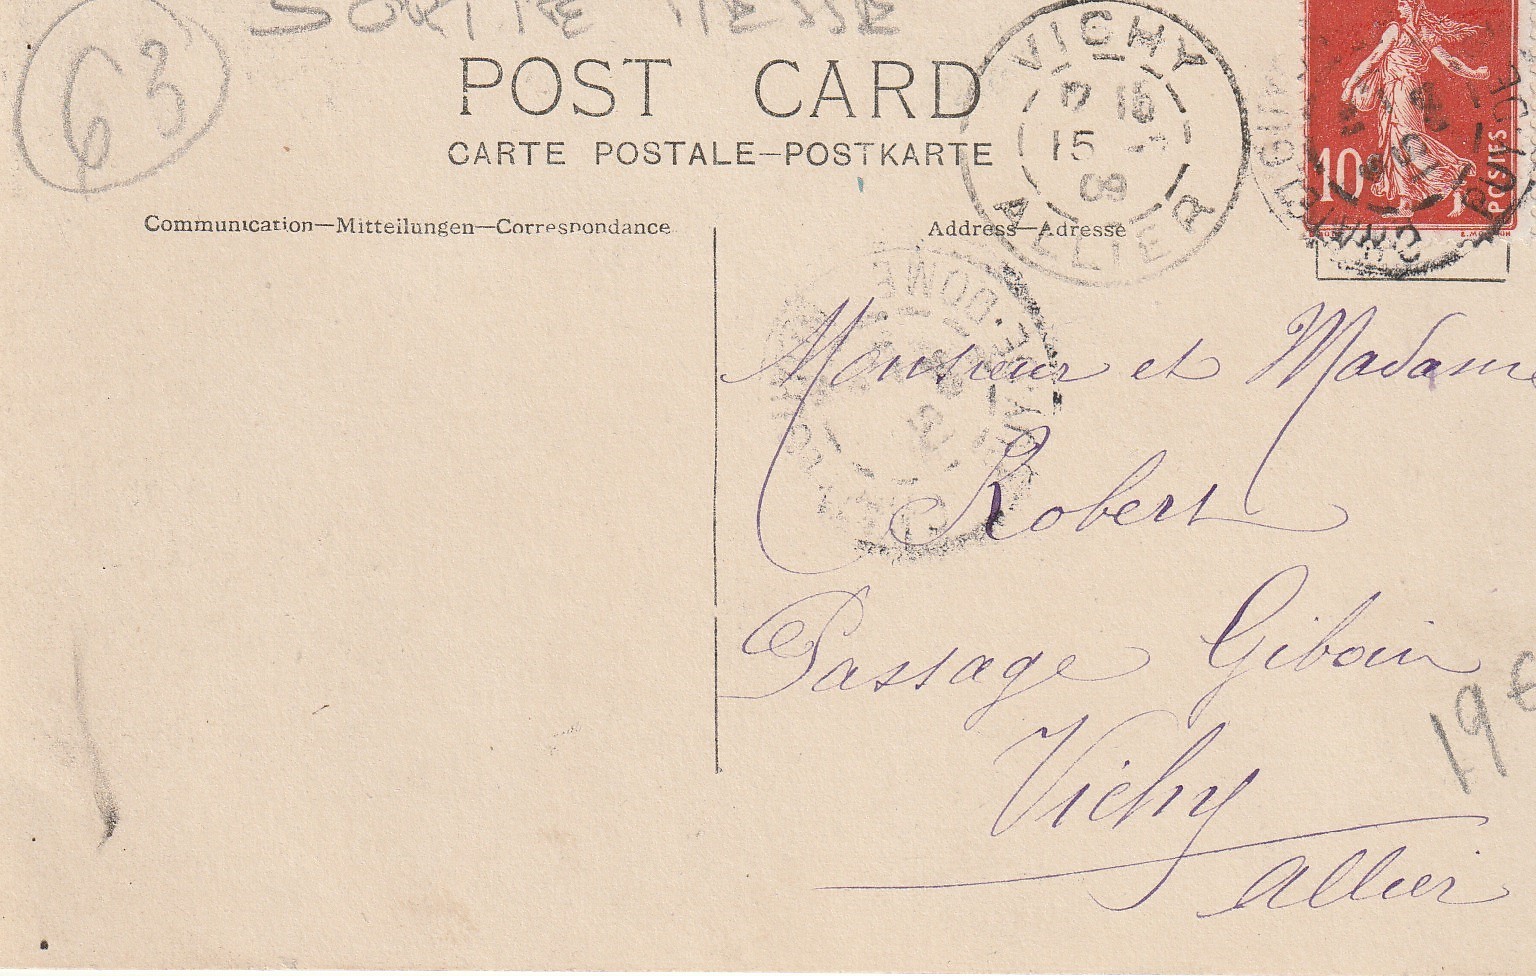 SORTIE MESSE
63
POST CARD
CARTE POSTALE—POSTKARTE
Communication—Mitteilungen—Correspondance
Address—Adresse
VICHY
15
8
ALLIER
10
POSTES
PUY-DE
PUY-DE-DOME
Monsieur et Madame
Robert
Passage Giboin
Vichy
Allier
19€